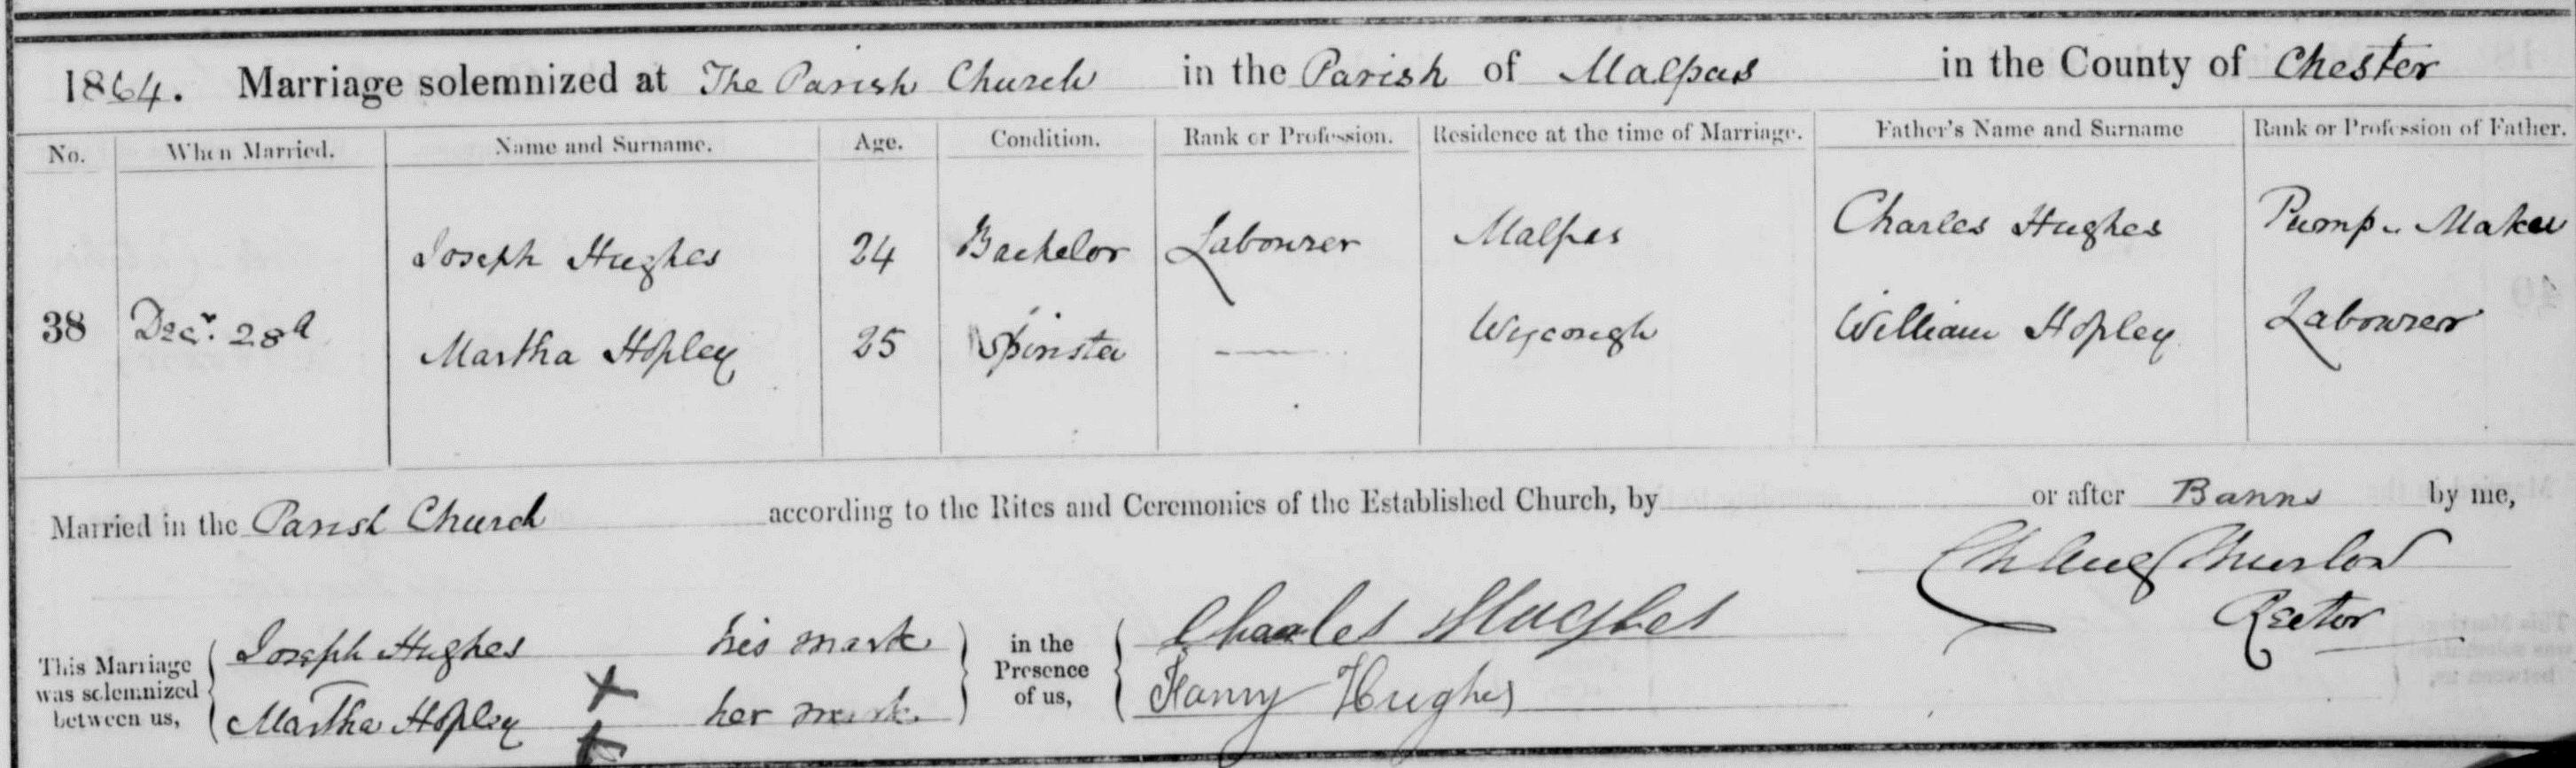 1864. Marriage solemnized at The Parish Church in the Parish of Malpas in the County of Chester
No. When Married. Name and Surname. Age. Condition. Rank or Profession. Residence at the time of Marriage. Father's Name and Surname Rank or Profession of Father.
Joseph Hughes 24 Bachelor Labourer Malpas Charles Hughes Pump Maker
38 Decr. 28th Martha Hopley 25 Spinster — Wycough William Hopley Labourer
Married in the Parish Church according to the Rites and Ceremonies of the Established Church, by or after Banns by me,
Rector
This Marriage was solemnized between us, Joseph Hughes his mark X
Martha Hopley her mark X
in the Presence of us, Charles Hughes
Fanny Hughes